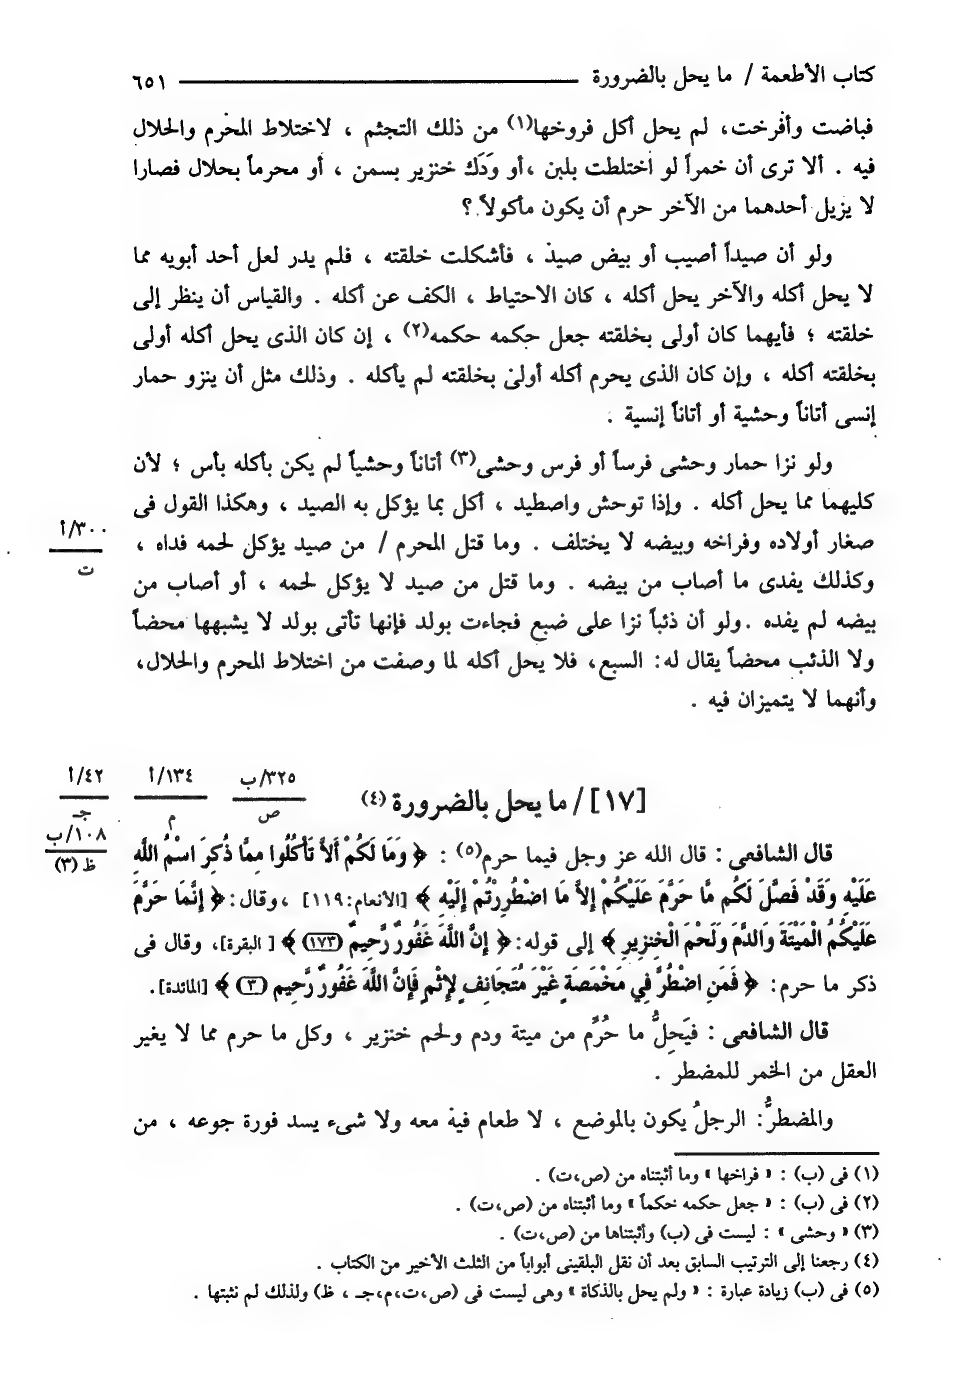 كتاب الأطعمة / ما يحل بالضرورة ٦٥١
فباضت وأفرخت، لم يحل أكل فروخها(١) من ذلك التجثم ، لاختلاط المحرم والحلال
فيه . ألا ترى أن خمراً لو اختلطت بلبن ،أو وَدَك خنزير بسمن ، أو محرماً بحلال فصارا
لا يزيل أحدهما من الآخر حرم أن يكون مأكولاً ؟
ولو أن صيداً أصيب أو بيض صيد ، فأشكلت خلقته ، فلم يدر لعل أحد أبويه مما
لا يحل أكله والآخر يحل أكله ، كان الاحتياط ، الكف عن أكله . والقياس أن ينظر إلى
خلقته ؛ فأيهما كان أولى بخلقته جعل حكمه حكمه(٢) ، إن كان الذى يحل أكله أولى
بخلقته أكله ، وإن كان الذى يحرم أكله أولى بخلقته لم يأكله . وذلك مثل أن ينزو حمار
إنسى أتاناً وحشية أو أتاناً إنسية .
ولو نزا حمار وحشى فرساً أو فرس وحشى(٣) أتاناً وحشياً لم يكن بأكله بأس ؛ لأن
كليهما مما يحل أكله . وإذا توحش واصطيد ، أكل بما يؤكل به الصيد ، وهكذا القول فى
٣٠٠/أ
ت
صغار أولاده وفراخه وبيضه لا يختلف . وما قتل المحرم / من صيد يؤكل لحمه فداه ،
وكذلك يفدى ما أصاب من بيضه . وما قتل من صيد لا يؤكل لحمه ، أو أصاب من
بيضه لم يفده .ولو أن ذئباً نزا على ضبع فجاءت بولد فإنها تأتى بولد لا يشبهها محضاً
ولا الذئب محضاً يقال له: السبع، فلا يحل أكله لما وصفت من اختلاط المحرم والحلال،
وأنهما لا يتميزان فيه .
٣٢٥/ب ١٣٤/أ ٤٢/أ
ص م جـ
[١٧] / ما يحل بالضرورة (٤)
١٠٨/ب
ظ (٣)
قال الشافعى : قال الله عز وجل فيما حرم(٥) : ﴿ وَمَا لَكُمْ أَلاَّ تَأْكُلُوا مِمَّا ذُكِرَ اسْمُ اللَّهِ
عَلَيْهِ وَقَدْ فَصَّلَ لَكُم مَّا حَرَّمَ عَلَيْكُمْ إِلاَّ مَا اضْطُرِرْتُمْ إِلَيْهِ ﴾ [الأنعام:١١٩] ، وقال: ﴿ إِنَّمَا حَرَّمَ
عَلَيْكُمُ الْمَيْتَةَ وَالدَّمَ وَلَحْمَ الْخِنزِيرِ ﴾ إلى قوله: ﴿ إِنَّ اللَّهَ غَفُورٌ رَّحِيمٌ (١٧٣) ﴾ [ البقرة]، وقال فى
ذكر ما حرم: ﴿ فَمَنِ اضْطُرَّ فِي مَخْمَصَةٍ غَيْرَ مُتَجَانِفٍ لإِثْمٍ فَإِنَّ اللَّهَ غَفُورٌ رَّحِيم (٣) ﴾ [المائدة].
قال الشافعى : فيَحِلُّ ما حُرِّم من ميتة ودم ولحم خنزير ، وكل ما حرم مما لا يغير
العقل من الخمر للمضطر .
والمضطرُّ: الرجلُ يكون بالموضع ، لا طعام فيه معه ولا شىء يسد فورة جوعه ، من
(١) فى (ب) : « فراخها » وما أثبتناه من (ص،ت) .
(٢) فى (ب) : « جعل حكمه حكماً » وما أثبتناه من (ص،ت) .
(٣) « وحشى » : ليست فى (ب) وأثبتناها من (ص،ت) .
(٤) رجعنا إلى الترتيب السابق بعد أن نقل البلقينى أبواباً من الثلث الأخير من الكتاب .
(٥) فى (ب) زيادة عبارة : « ولم يحل بالذكاة » وهى ليست فى (ص،ت،م،جـ ، ظ) ولذلك لم نثبتها .